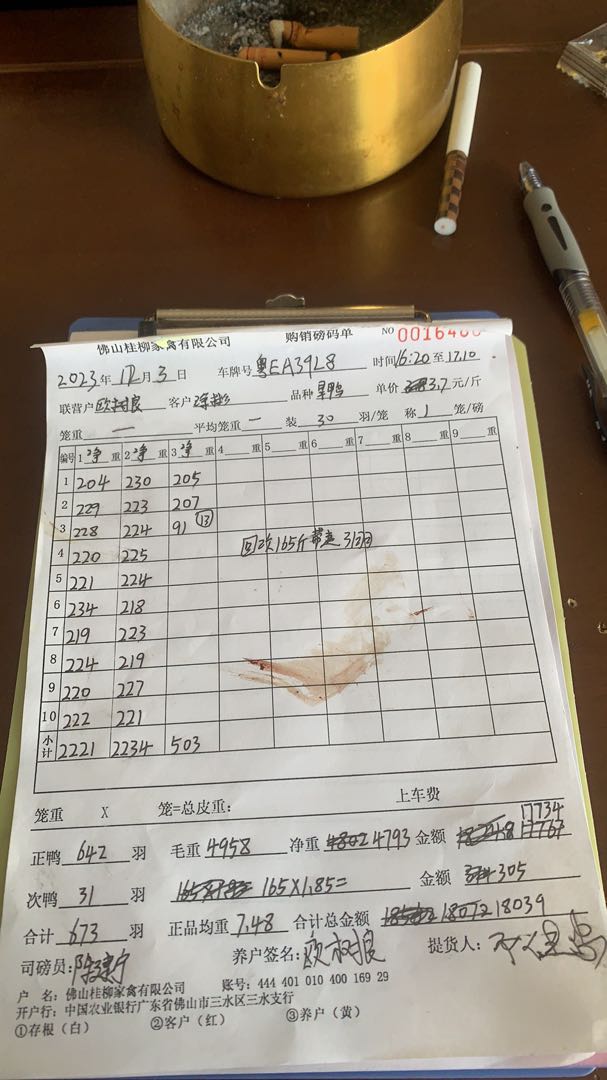 佛山桂柳家禽有限公司 购销磅码单 NO 00164
2023年 12月 3日 车牌号 粤EA3928 时间 16:20 至 17.10
联营户 欧树良 客户 品种 单价 3.7 元/斤
笼重 一 平均笼重 一 装 30 羽/笼 称 1 笼/磅
编号 1 净 重 2 净 重 3 净 重 4 重 5 重 6 重 7 重 8 重 9 重
1 204 230 205
2 229 223 207
3 228 224 91 ⑬
4 220 225 回次165斤 带走31羽
5 221 224
6 234 218
7 219 223
8 224 219
9 220 227
10 222 221
小计 2221 2234 503
笼重 X 笼=总皮重: 上车费
17734
正鸭 642 羽 毛重 4958 净重 4793 金额 17767
次鸭 31 羽 165X1.85= 金额 305
合计 673 羽 正品均重 7.48 合计总金额 18072 18039
司磅员: 养户签名: 欧树良 提货人:
户 名: 佛山桂柳家禽有限公司 账号: 444 401 010 400 169 29
开户行: 中国农业银行广东省佛山市三水区三水支行
①存根（白） ②客户（红） ③养户（黄）